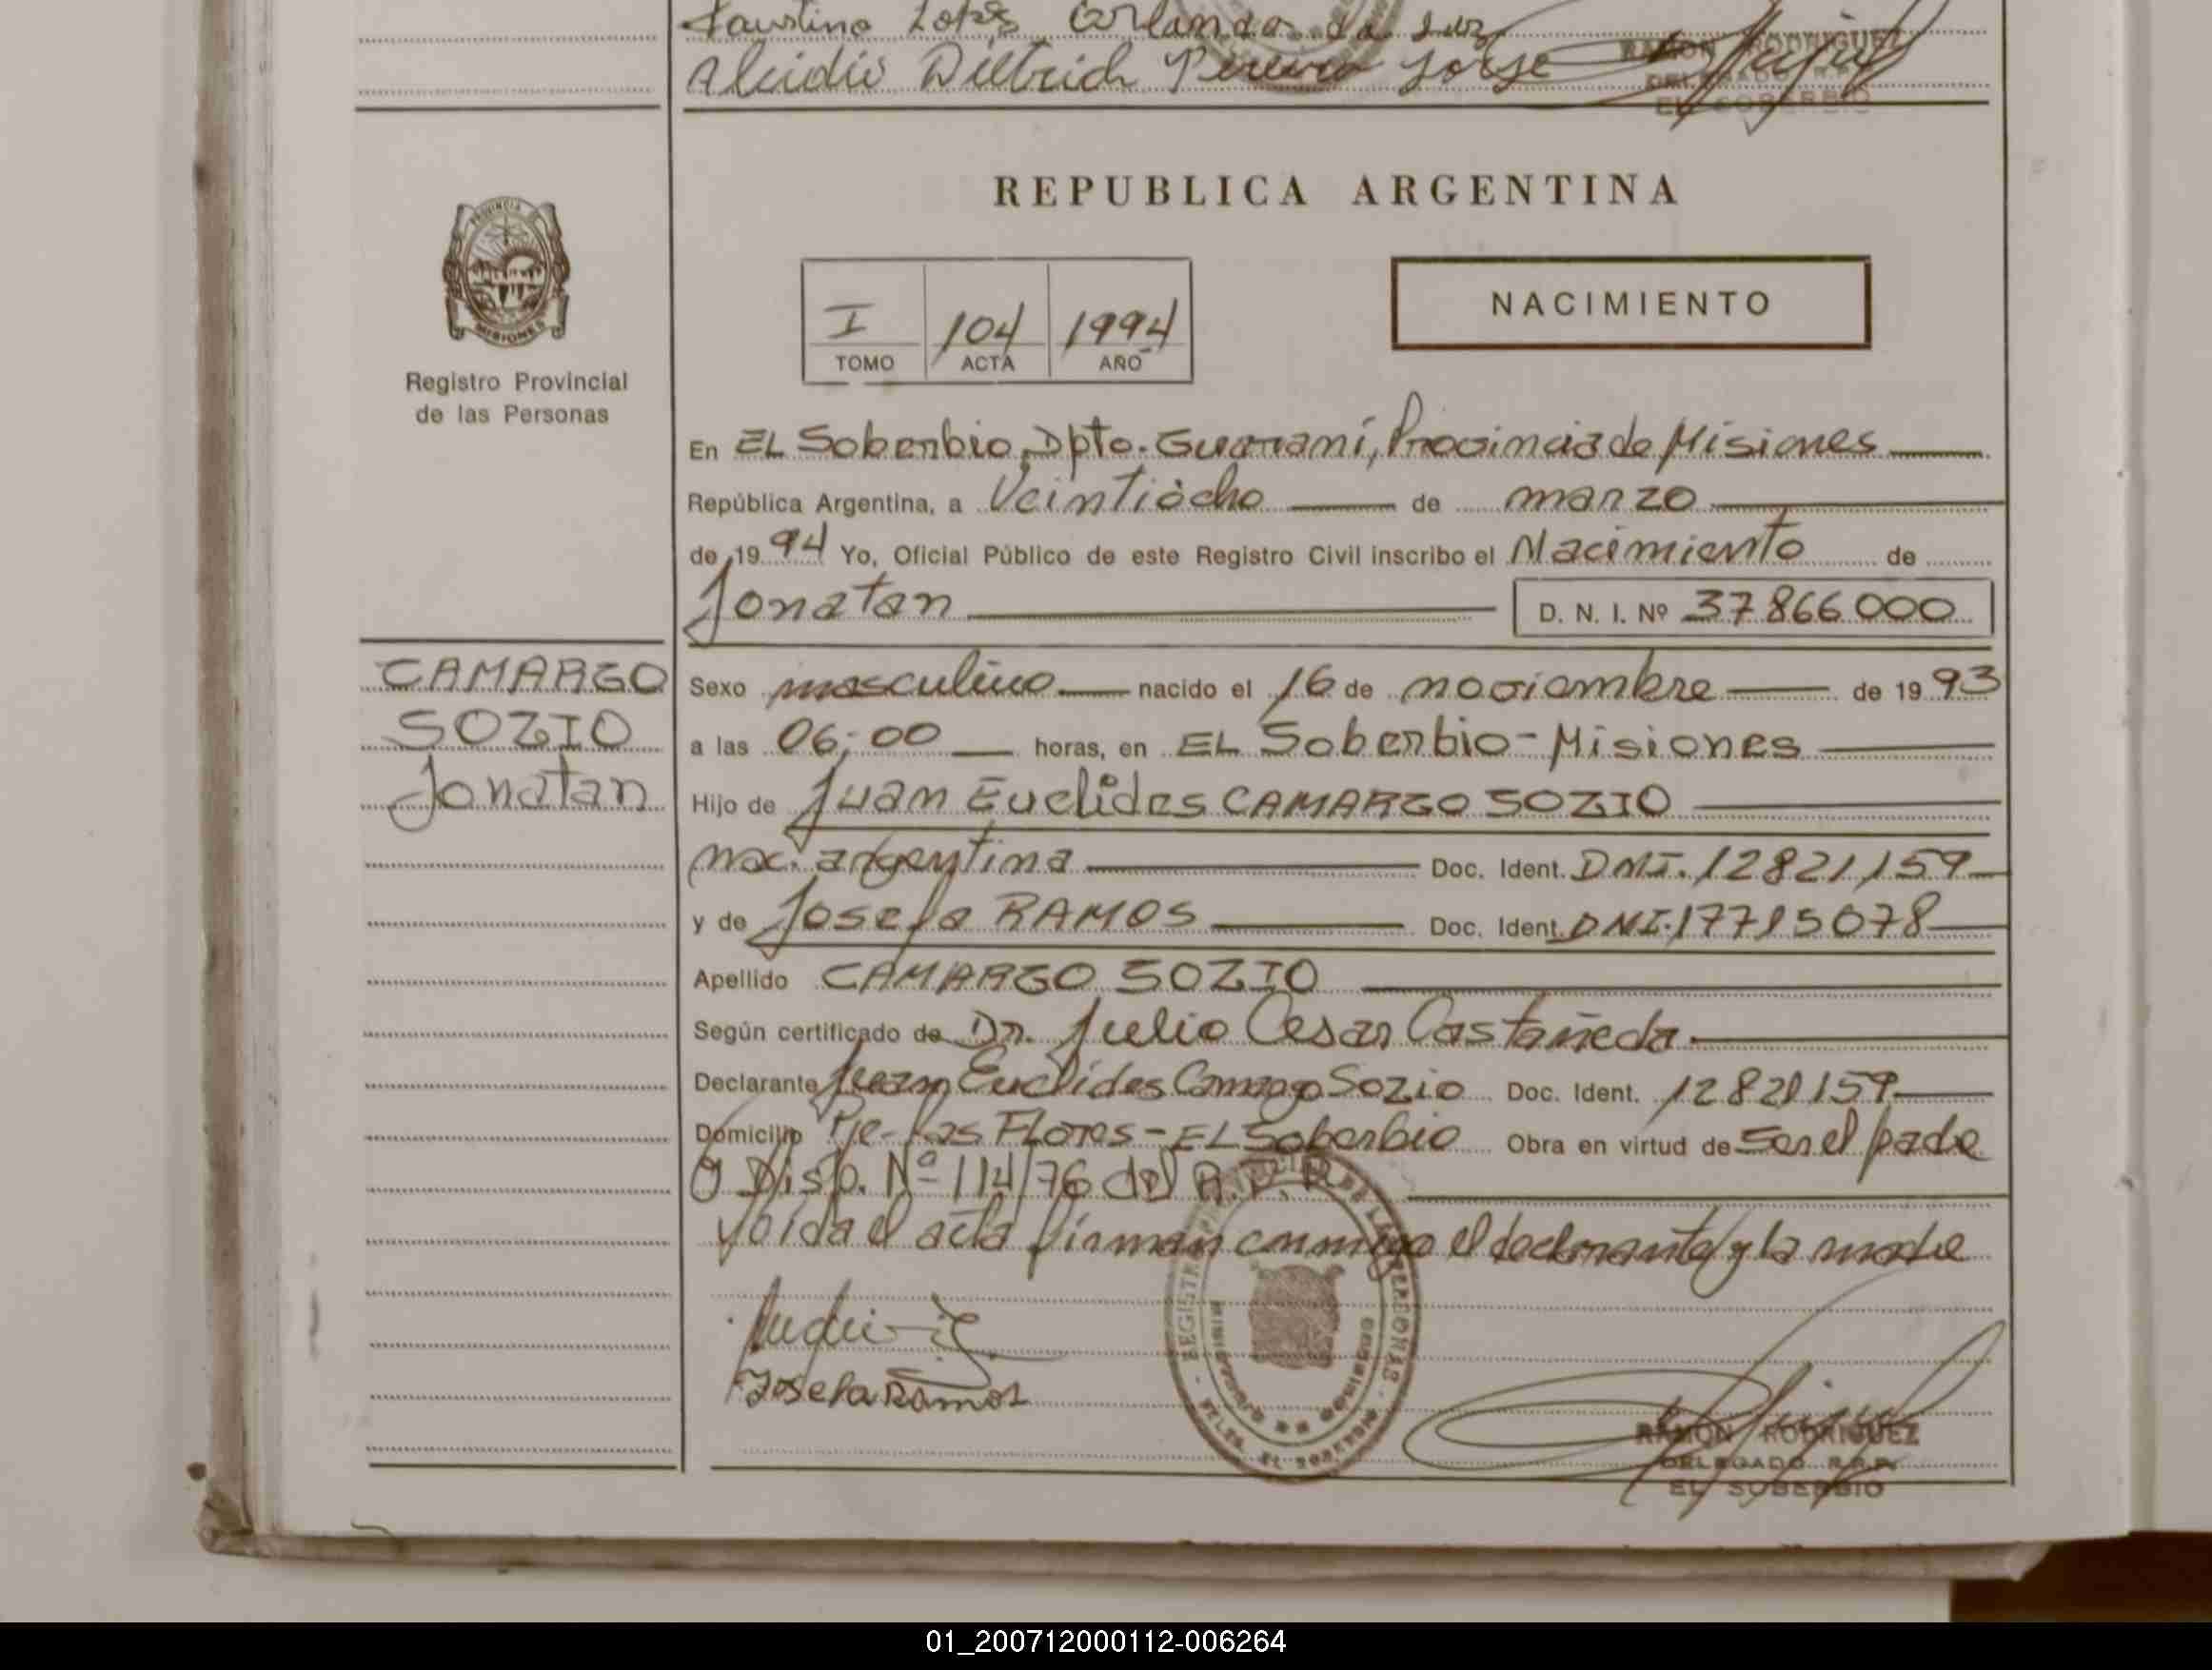 Faustino Lopes Orlando da Luz
Alcidio Dietrich Pereira Jorge
RAMON RODRIGUEZ
DELEGADO R.P.P.
EL SOBERBIO
REPUBLICA ARGENTINA
PROVINCIA DE
MISIONES
Registro Provincial
de las Personas
I 104 1994
TOMO ACTA AÑO
NACIMIENTO
En EL Soberbio, Dpto. Guaraní, Provincia de Misiones
República Argentina, a Veintiocho de marzo
de 1994 Yo, Oficial Público de este Registro Civil inscribo el Nacimiento de
Jonatan D. N. I. Nº 37866000
CAMARGO
SOZIO
Jonatan
Sexo masculino nacido el 16 de noviembre de 1993
a las 06:00 horas, en EL Soberbio - Misiones
Hijo de Juan Euclides CAMARGO SOZIO
nac. argentina Doc. Ident. DNI. 12821159
y de Josefa RAMOS Doc. Ident. DNI. 17715078
Apellido CAMARGO SOZIO
Según certificado de Dr. Julio Cesar Castañeda
Declarante Juan Euclides Camargo Sozio Doc. Ident. 12821159
Domicilio Pje- Las Flores - EL Soberbio Obra en virtud de ser el padre
O Disp. Nº 114/76 del R.P.P.
Y oída el acta firman conmigo el declarante y la madre
Josefa Ramos
REGISTRO PROVINCIAL DE LAS PERSONAS
MINISTERIO DE GOBIERNO
DELEG. EL SOBERBIO
RAMON RODRIGUEZ
DELEGADO R.P.P.
EL SOBERBIO
01_200712000112-006264